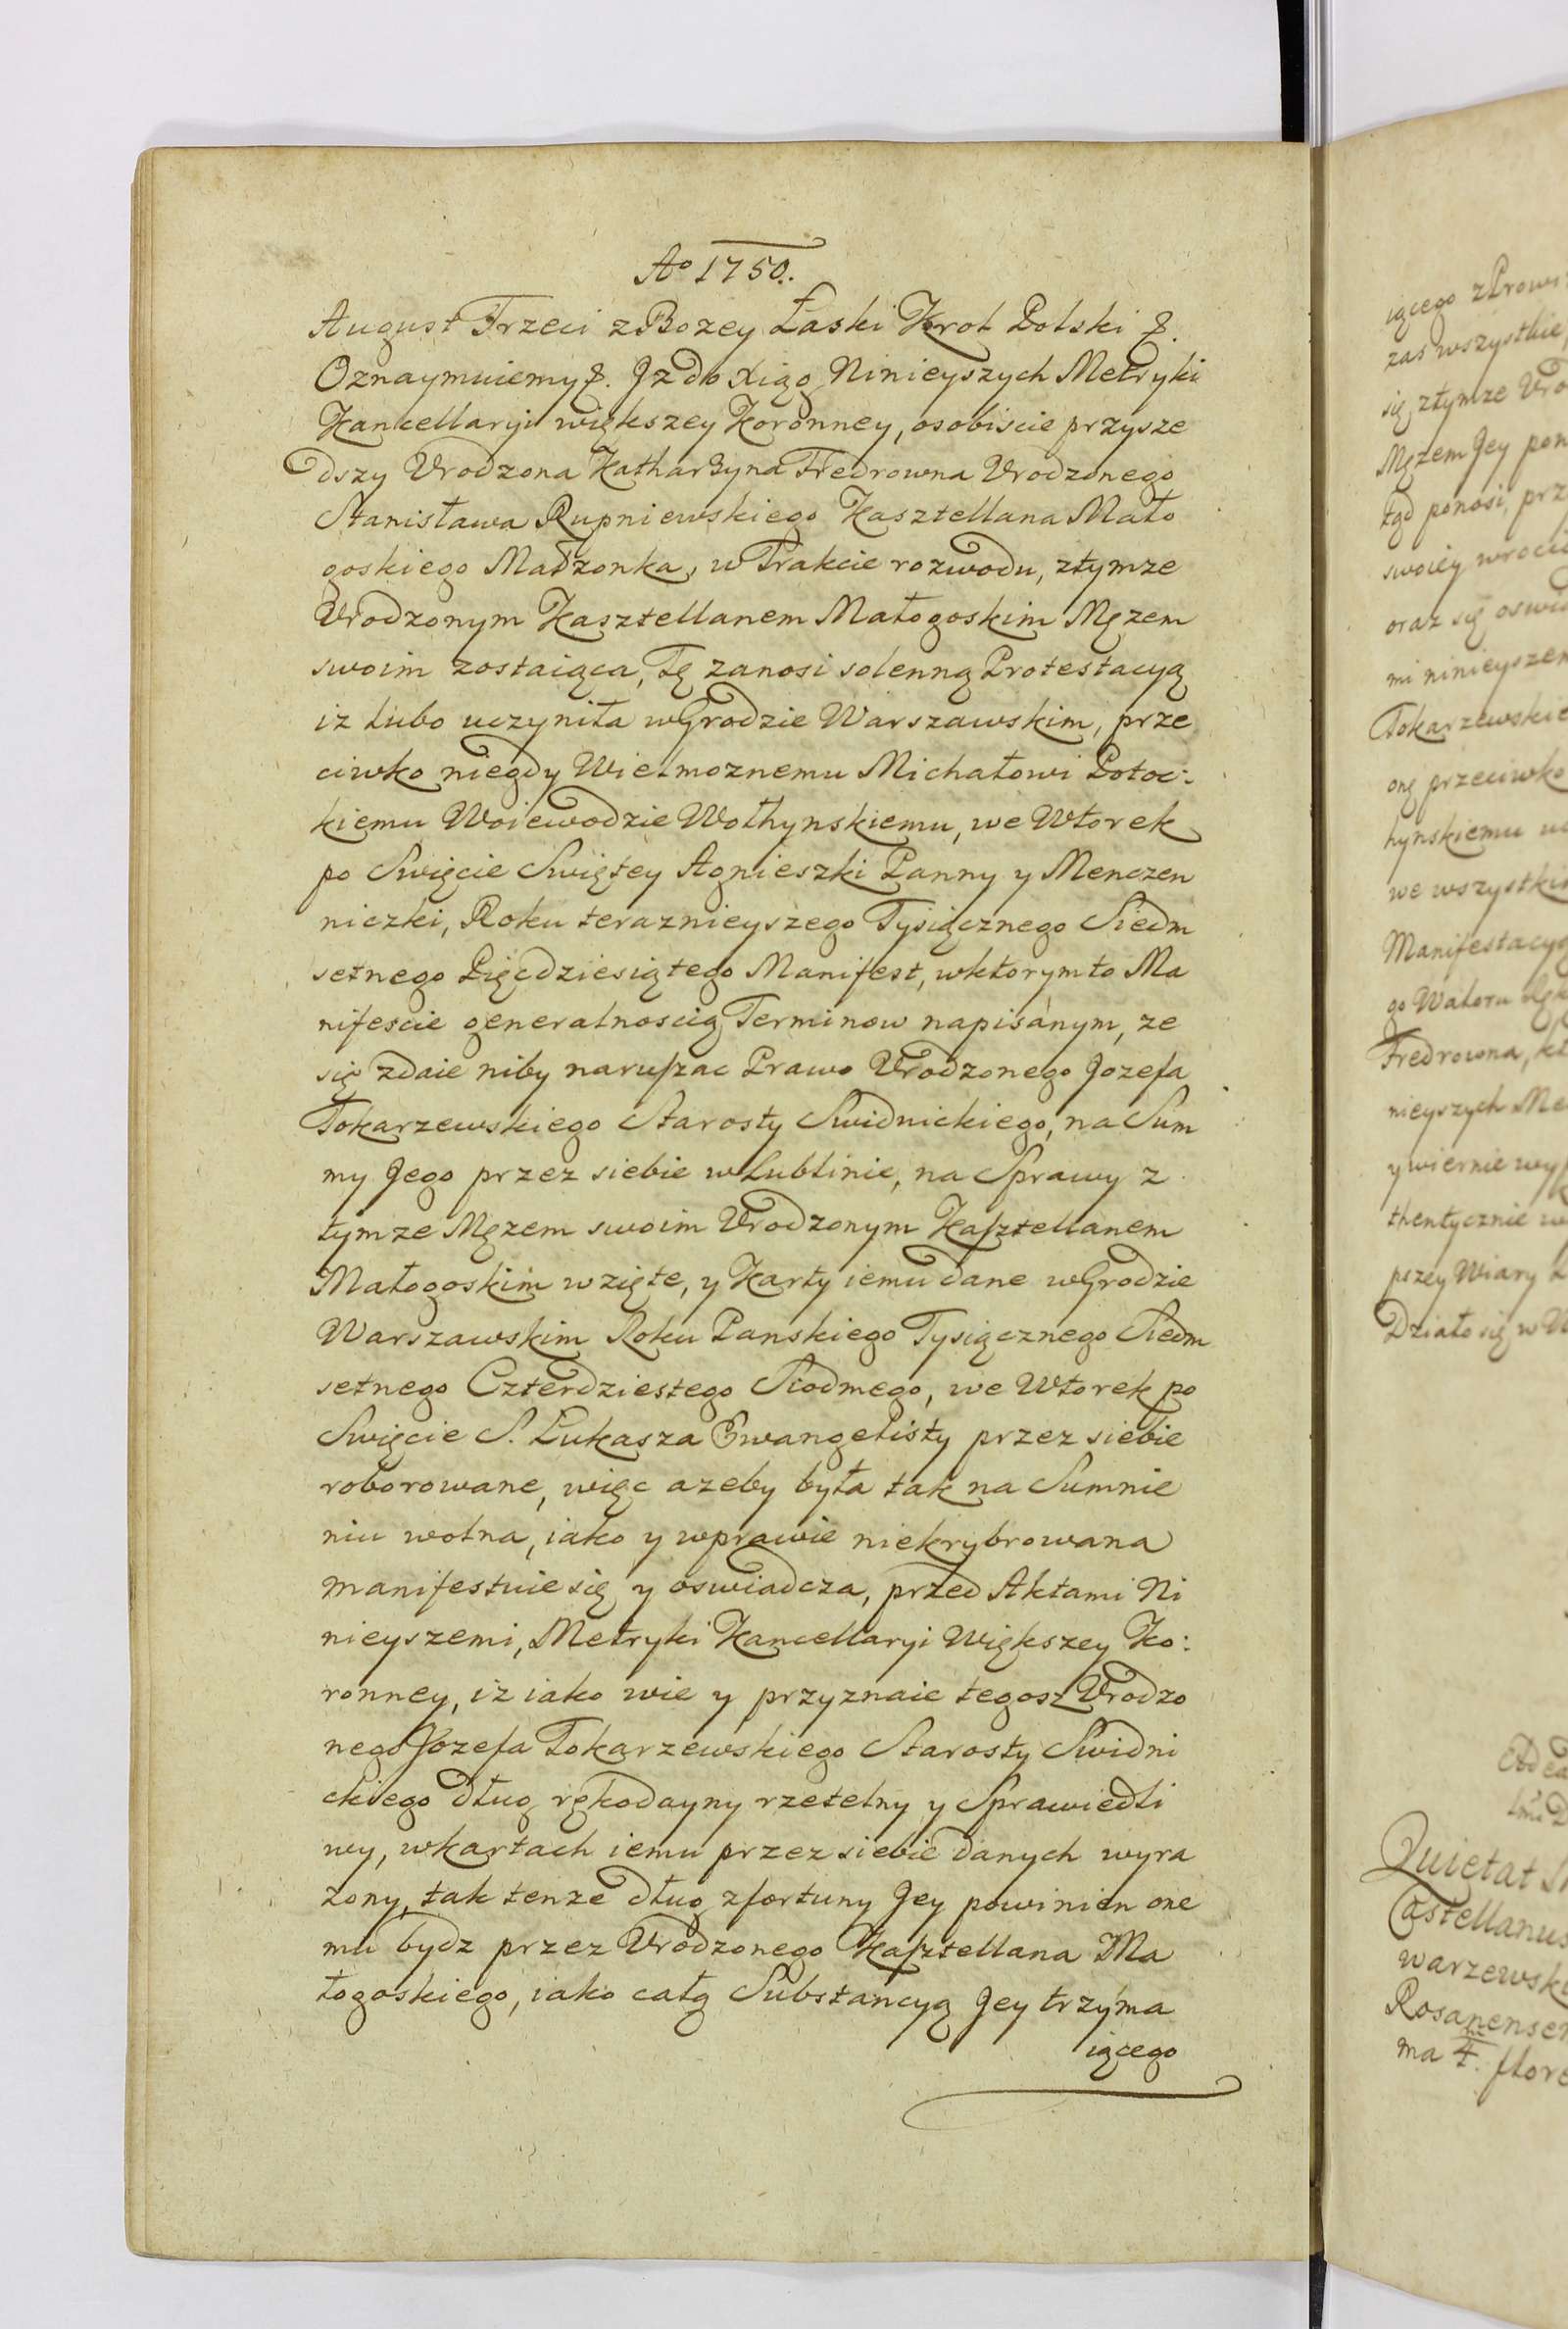 Ao 1750.
August Trzeci z Bozey Łaski Krol Polski &.
Oznaymuiemy &. Jz do Xiąg Ninieyszych Metryki
Kancellaryi większey Koronney, osobiscie przysze
dszy Vrodzona Katharzyna Fredrowna Vrodzonego
Stanisława Rupniewskiego Kasztellana Mało
goskiego Małzonka, w Trakcie rozwodu, ztymze
Vrodzonym Kasztellanem Małogoskim Męzem
swoim zostaiąca, Tę zanosi solenną Protestacyą
iz lubo uczyniła w Grodzie Warszawskim, prze
ciwko niegdy Wielmoznemu Michałowi Potoc:
kiemu Woiewodzie Wołhynskiemu, we Wtorek
po Swięcie Swiętey Agnieszki Panny y Menczen
niczki, Roku teraznieyszego Tysiącznego Siedm
setnego Pięcdziesiątego Manifest, wktorym to Ma
nifescie generalnoscią Terminow napisanym, ze
się zdaie niby naruszac Prawo Vrodzonego Jozefa
Tokarzewskiego Starosty Swidnickiego, na Sum
my Jego przez siebie w Lublinie, na Sprawy z
tymze Męzem swoim Vrodzonym Kasztellanem
Małogoskim wzięte, y Karty iemu dane w Grodzie
Warszawskim Roku Panskiego Tysiącznego Siedm
setnego Czterdziestego Siodmego, we Wtorek po
Swięcie S. Łukasza Ewangelisty przez siebie
roborowane, więc azeby była tak na Sumnie
niu wolna, iako y wprawie niekrybrowana
manifestuie się y oswiadcza, przed Aktami Ni
nieyszemi, Metryki Kancellaryi Większey Ko:
ronney, iz iako wie y przyznaie tegosz Vrodzo
nego Jozefa Tokarzewskiego Starosty Swidni
ckiego dług rękodayny rzetelny y Sprawiedli
wy, wkartach iemu przez siebie danych wyra
zony, tak tenze dług zfortuny Jey powinien one
mu bydz przez Vrodzonego Kasztellana Ma
łogoskiego, iako całą Substancyą Jey trzyma
iącego
iącego z Prowi
zas wszystkie
się ztymze Vro
Męzem Jey pon
tąd ponosi, prz
swoiey wrocie
oraz się oswia
mi ninieyszem
Tokarzewskie
onę przeciwko
hynskiemu uc
we wszystkim
Manifestacyą
go Waloru
Fredrowna, kt
nieyszych Me
y wiernie wyp
thentycznie w
pszey Wiary
Działo się w W
Quietat
Castellanus
warzewski
Rosanensem
ma flore